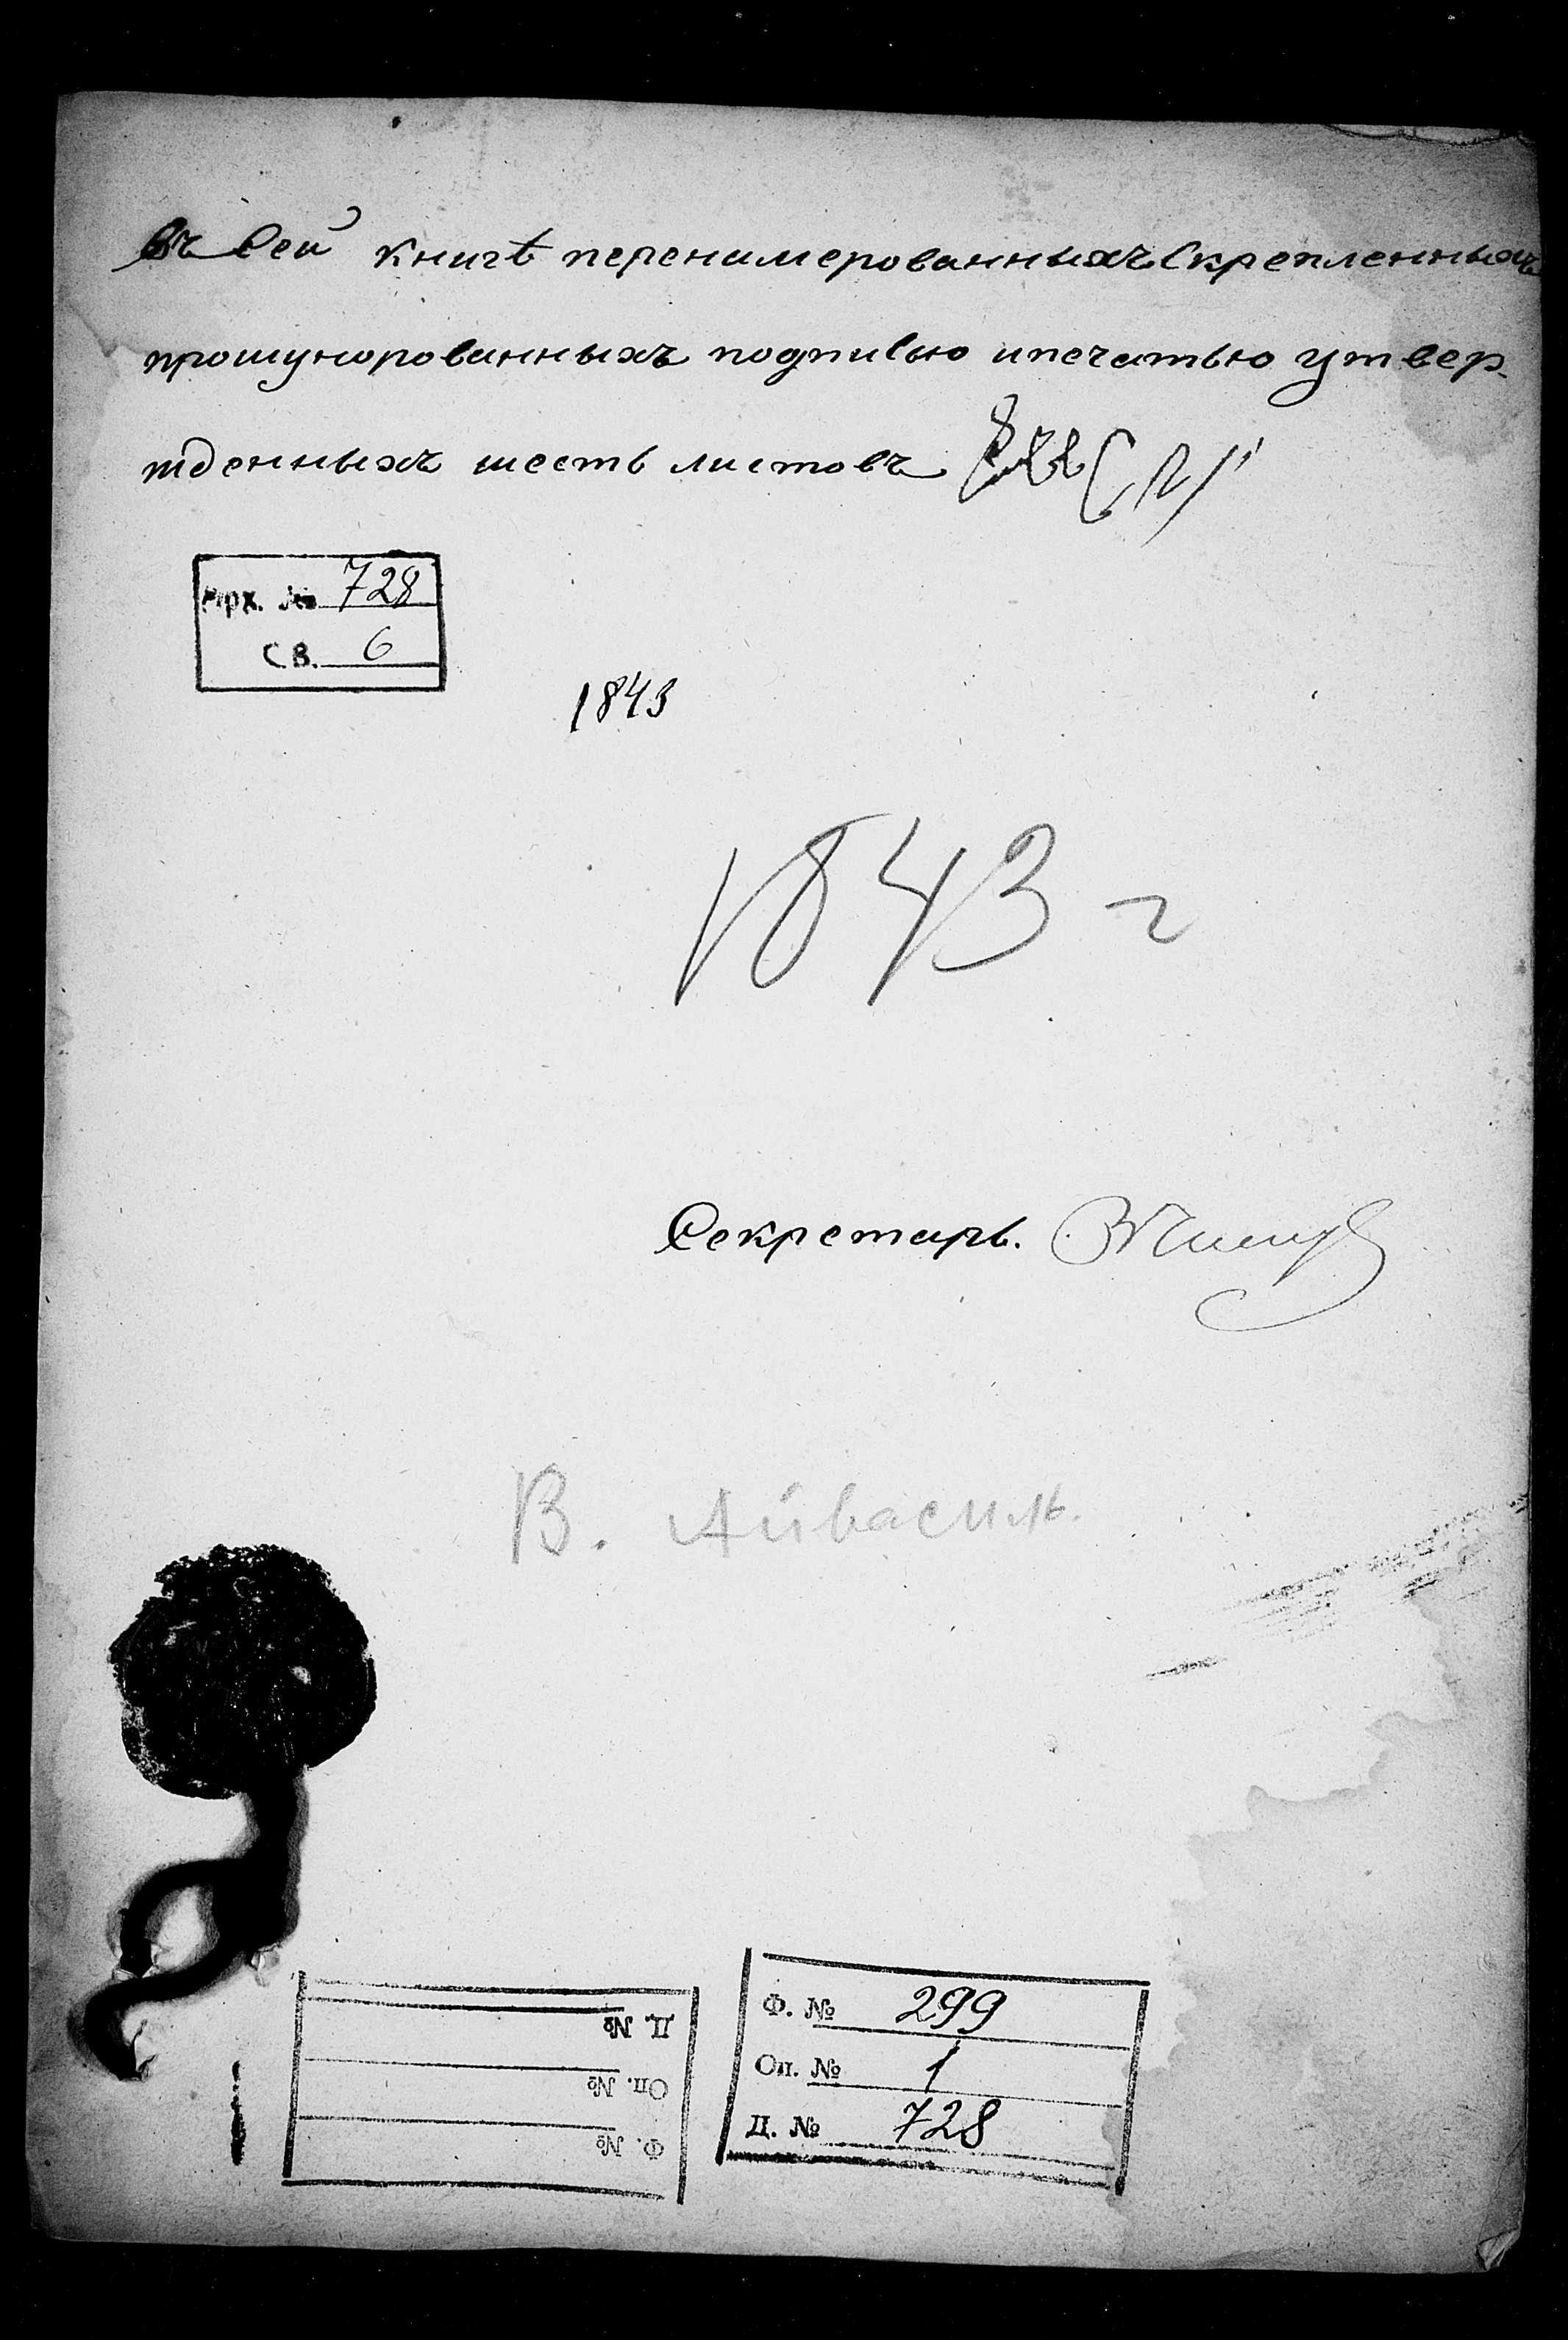 Въ сей книгѣ перенумерованныхъ скрепленныхъ
прошунорованныхъ подписью и печатью утвер-
жденныхъ шесть листовъ
Арх. № 728
СВ. 6
1843
1843 г
Секретарь.
В. Айвасиль.
Ф. № 299
Оп. № 1
Д. № 728
Д. №
Оп. №
Ф. №